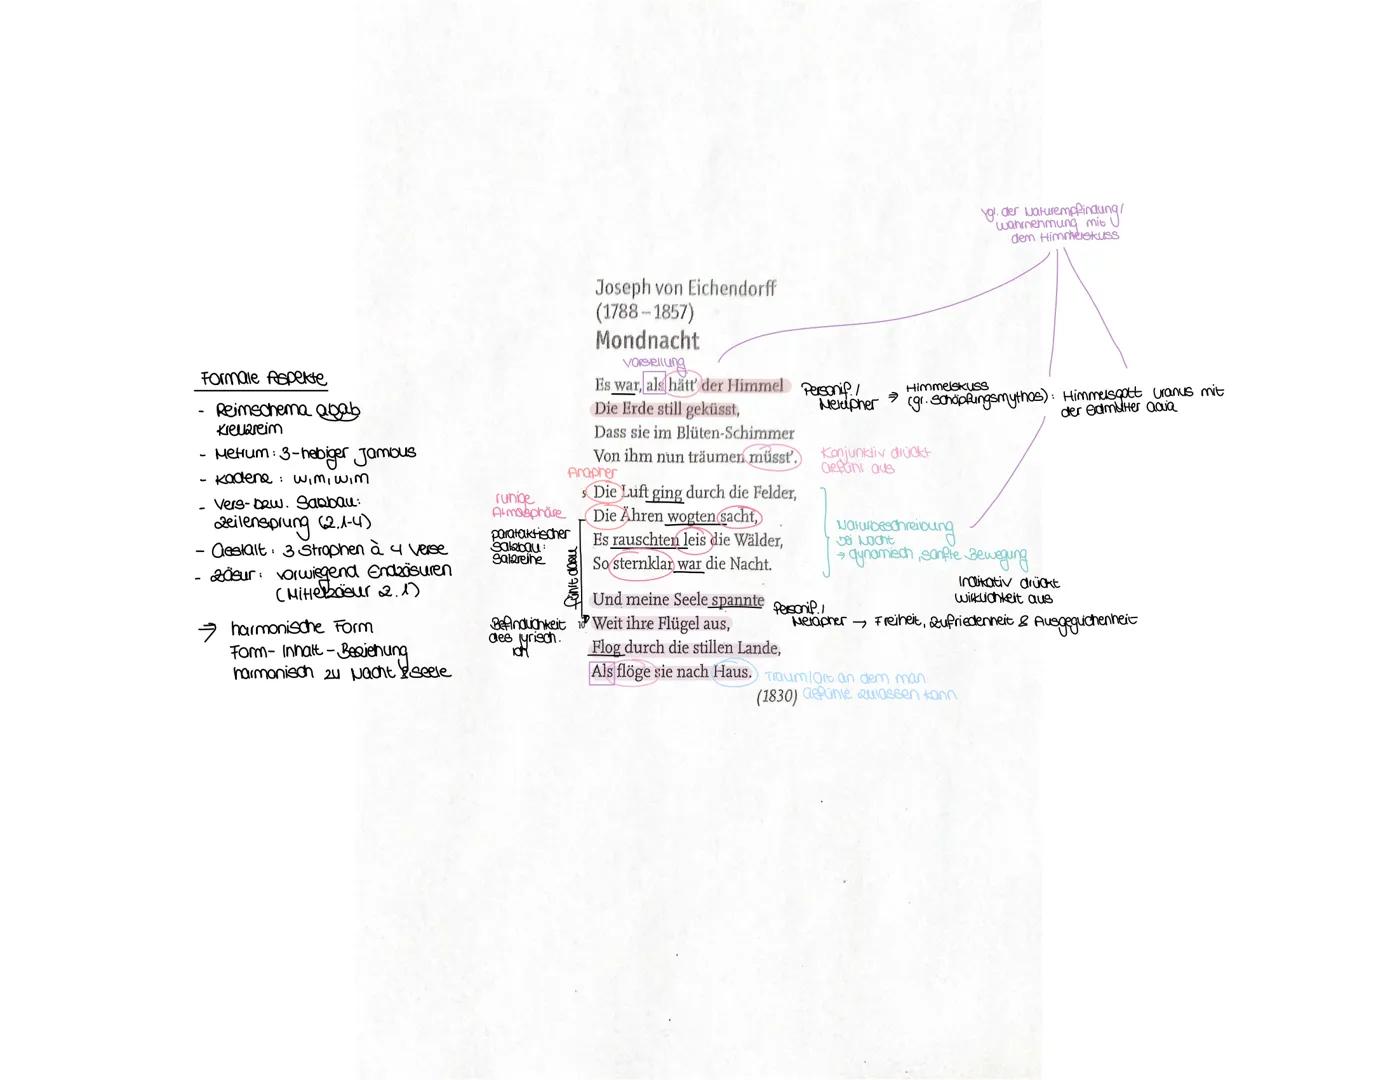 vgl. der Naturempfindung/
wahrnehmung mit
dem Himmelskuss
Joseph von Eichendorff
(1788–1857)
Mondnacht
Vorstellung
Es war, als hätt' der Himmel
Die Erde still geküsst,
Dass sie im Blüten-Schimmer
Von ihm nun träumen müsst'.
Personif. /
Metapher
→ Himmelskuss
(gr. Schöpfungsmythos): Himmelsgott Uranus mit
der Erdmutter Gaia
Konjunktiv drückt
Gefühl aus
Anapher
5 Die Luft ging durch die Felder,
Die Ähren wogten sacht,
Es rauschten leis die Wälder,
So sternklar war die Nacht.
ruhige
Atmosphäre
parataktischer
Satzbau:
Satzreihe
führt dazu
Naturbeschreibung
bei Nacht
→ dynamisch, sanfte Bewegung
Indikativ drückt
Wirklichkeit aus
Und meine Seele spannte
10 Weit ihre Flügel aus,
Flog durch die stillen Lande,
Als flöge sie nach Haus.
(1830)
Befindlichkeit
des lyrisch.
Ich
Personif. /
Metapher → Freiheit, Zufriedenheit & Ausgeglichenheit
Traum/Ort an dem man
Gefühle zulassen kann
Formale Aspekte
- Reimschema abab
Kreuzreim
- Metrum: 3-hebiger Jambus
- Kadenz: w, m, w, m
- Vers- bzw. Satzbau:
Zeilensprung (Z.1-4)
- Gestalt: 3 Strophen à 4 Verse
- Zäsur: vorwiegend Endzäsuren
(Mittelzäsur Z.1)
→ harmonische Form
Form-Inhalt-Beziehung
harmonisch zu Nacht & Seele